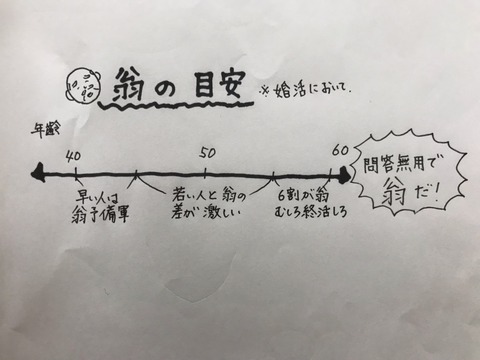 翁の目安 ※婚活において.
年齢
40 50 60
早い人は
翁予備軍
若い人と翁の
差が激しい
6割が翁
むしろ終活しろ
問答無用で
翁だ!